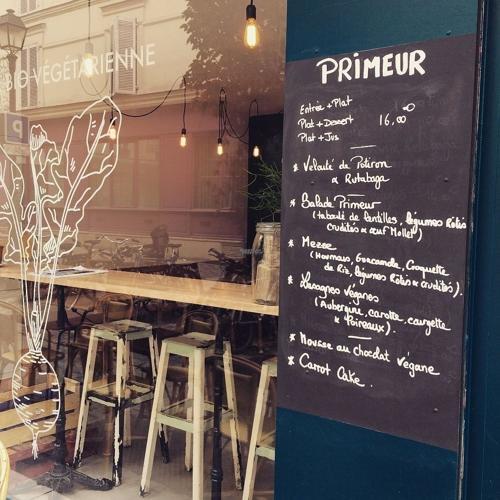 BIO-VÉGÉTARIENNE
PRIMEUR
Entrée + Plat
Plat + Dessert 16,00
Plat + Jus
* Velouté de Potiron
& Rutabaga
* Salade Primeur
(taboulé de lentilles, légumes Rôtis
crudités & œuf Mollet)
* Mezze
(Houmous, Guacamole, Croquette
de Riz, légumes Rôtis & crudités).
* Lasagnes Véganes
(Aubergine, carotte, courgette
& Poireaux).
* Mousse au chocolat végane
* Carrot Cake.